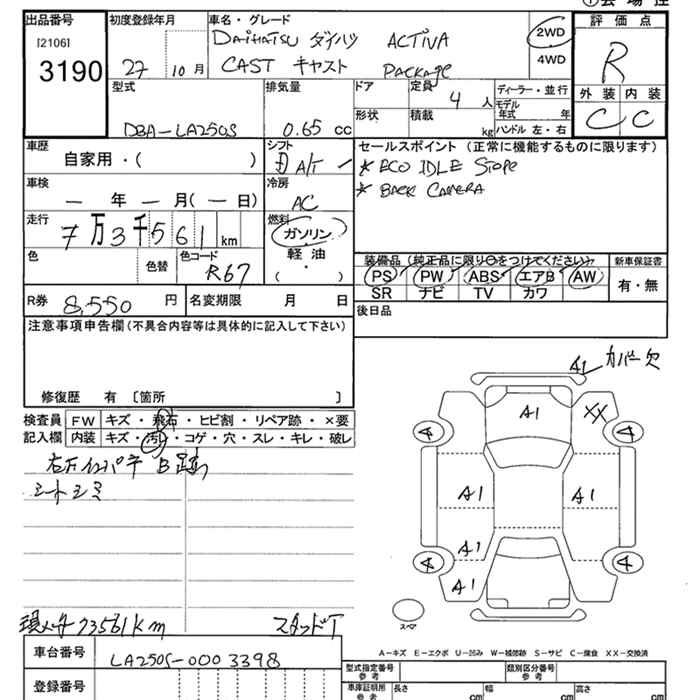 出品番号 初度登録年月 車名・グレード
[2106] DAIHATSU ダイハツ ACTIVA 2WD 評価点
3190 27 10月 CAST キャスト PACKAGE 4WD R
型式 排気量 ドア 定員 4人 ディーラー・並行 外装 内装
モデル年式 年
形状 積載 kg ハンドル 左・右 C C
DBA-LA250S 0.65 cc
車歴 シフト セールスポイント (正常に機能するものに限ります)
自家用・( ) A/T * ECO IDLE STOP
車検 冷房 * BACK CAMERA
ー 年 ー 月(ー日) AC
走行 燃料
7万3千561km ガソリン
色 色替 色コード 軽油 装備品 (純正品に限り○をつけてください) 新車保証書
R67 ・( ) PS PW ABS エアB AW 有・無
SR ナビ TV カワ
R券 8,550 円 名変期限 月 日 後日品
注意事項申告欄(不具合内容等は具体的に記入して下さい)
修復歴 有 [箇所 ]
A1 カバー欠
検査員 FW キズ・飛石・ヒビ割・リペア跡・×要
記入欄 内装 キズ・汚レ・コゲ・穴・スレ・キレ・破レ
A1 XX
A A
右下インパネ B跡
シートシミ
A1 A1
A1
A A
A1
スペア
現メータ73561km スタッドT
A-キズ E-エクボ U-凹み W-補修跡 S-サビ C-腐食 XX-交換済
車台番号 LA250S-0003398
型式指定番号 参考 類別区分番号 参考
登録番号 車庫証明用 参考 長さ cm 幅 cm 高さ cm